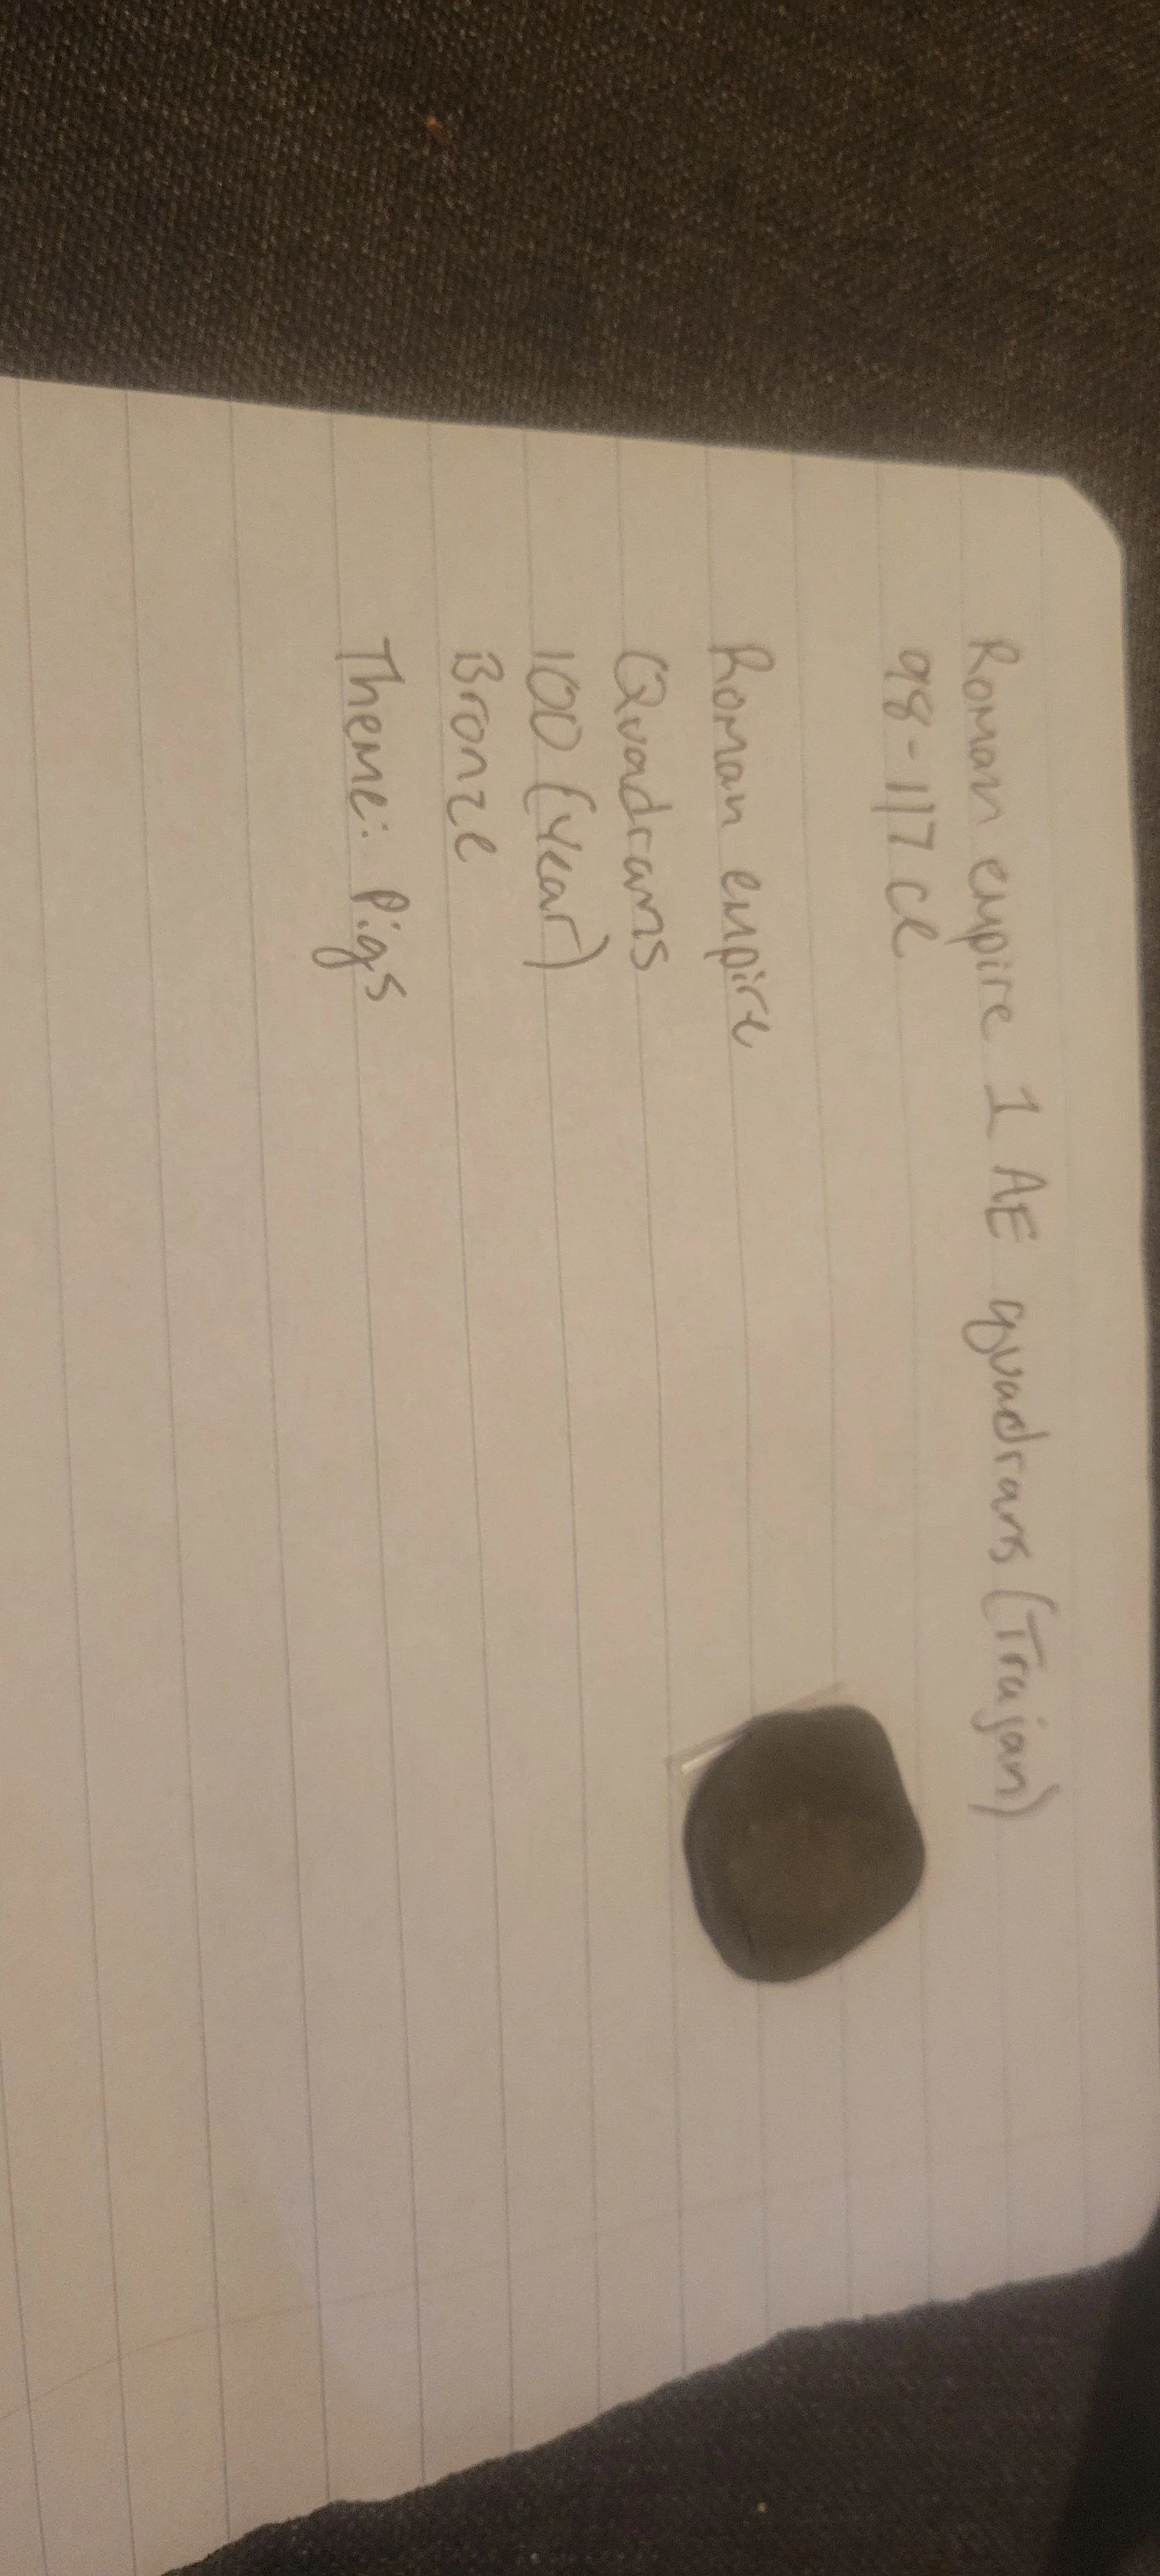 Roman empire 1 AE quadrans (Trajan)
98-117 ce
Roman empire
Quadrans
100 (year)
Bronze
Theme: Pigs